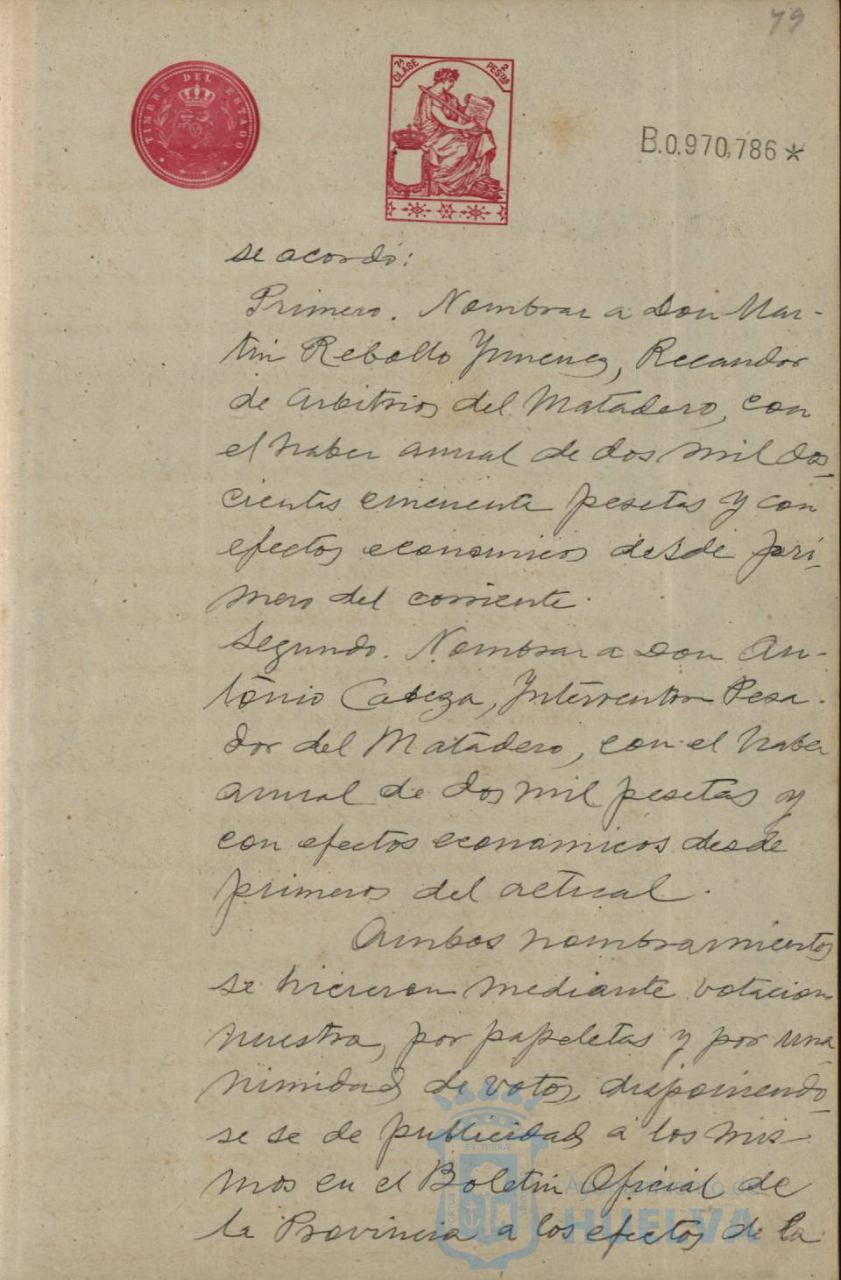 79
TIMBRE DEL ESTADO
7ª CLASE 2 PESTAS
B.0.970,786*
se acordó:
Primero. Nombrar a Don Mar-
tin Rebollo Ymenez, Recaudor
de arbitrios del Matadero, con
el haber anual de dos mil dos-
cientas cincuenta pesetas y con
efectos economicos desde pri-
mero del corriente.
Segundo. Nombrar a Don An-
tonio Cabeza, Ynterventor Pesa-
dor del Matadero, con el haber
anual de dos mil pesetas y
con efectos economicos desde
primeros del actual.
Ambos nombramientos
se hicieron mediante votacion
nuestra, por papeletas y por una-
nimidad de votos, disponiendo-
se se de publicidad a los mis-
mos en el Boletin Oficial de
la Provincia a los efectos de la
Ayuntamiento de
HUELVA